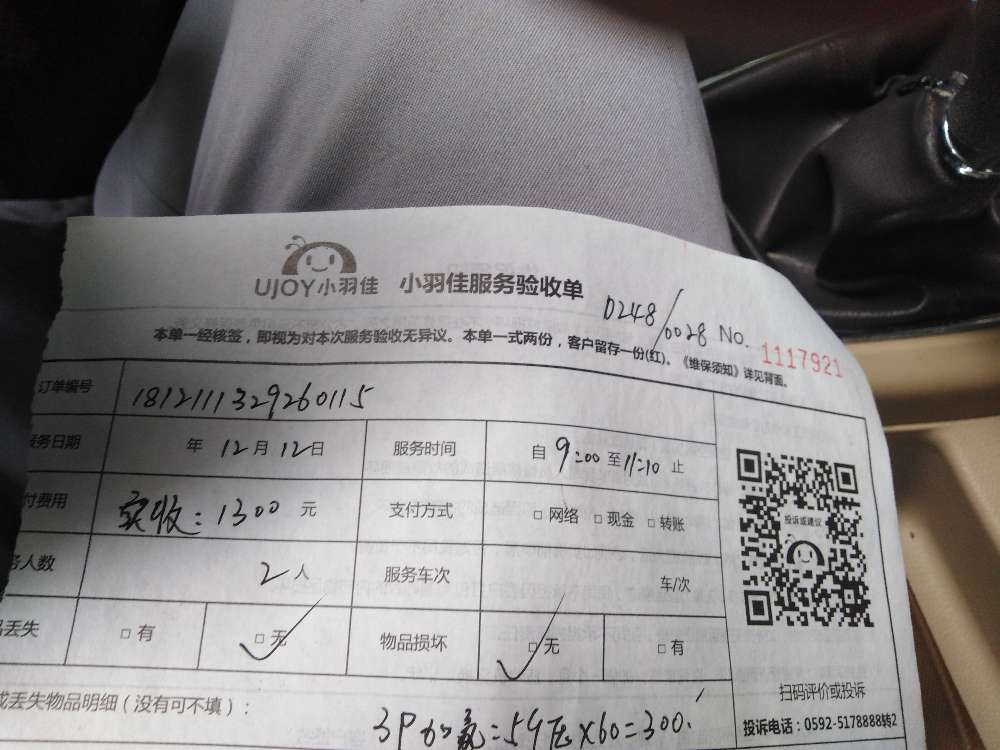 UJOY小羽佳 小羽佳服务验收单
0248/0028 No. 1117921
本单一经核签，即视为对本次服务验收无异议。本单一式两份，客户留存一份(红)。《维保须知》详见背面。
订单编号 1812111329260115
务日期 年 12月 12日 服务时间 自 9:00 至 11:10 止
付费用 实收：1300 元 支付方式 □ 网络 □ 现金 □ 转账
务人数 2 人 服务车次 车/次
品丢失 □ 有 □ 无 物品损坏 □ 无 □ 有
投诉或建议
扫码评价或投诉
投诉电话：0592-5178888转2
或丢失物品明细（没有可不填）：
3P加氟：5个压×60=300.